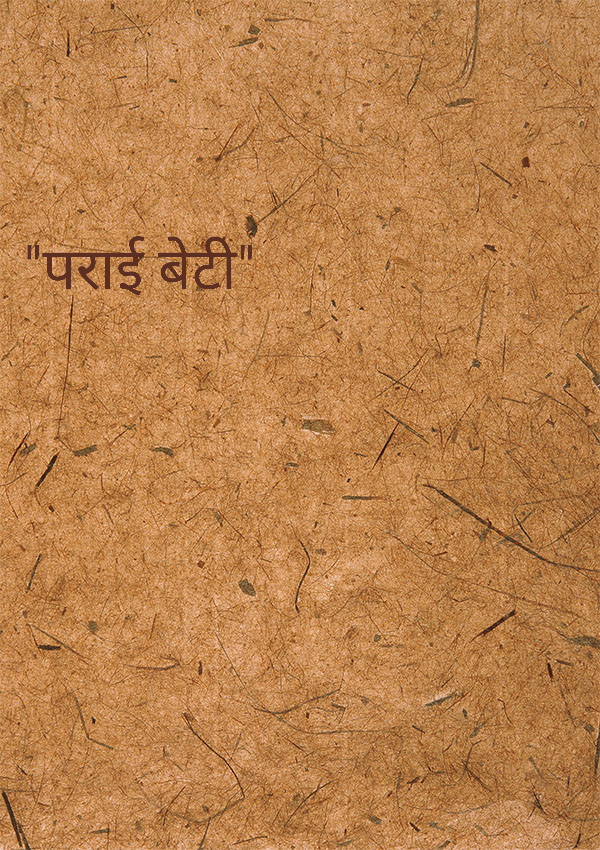 "पराई बेटी"